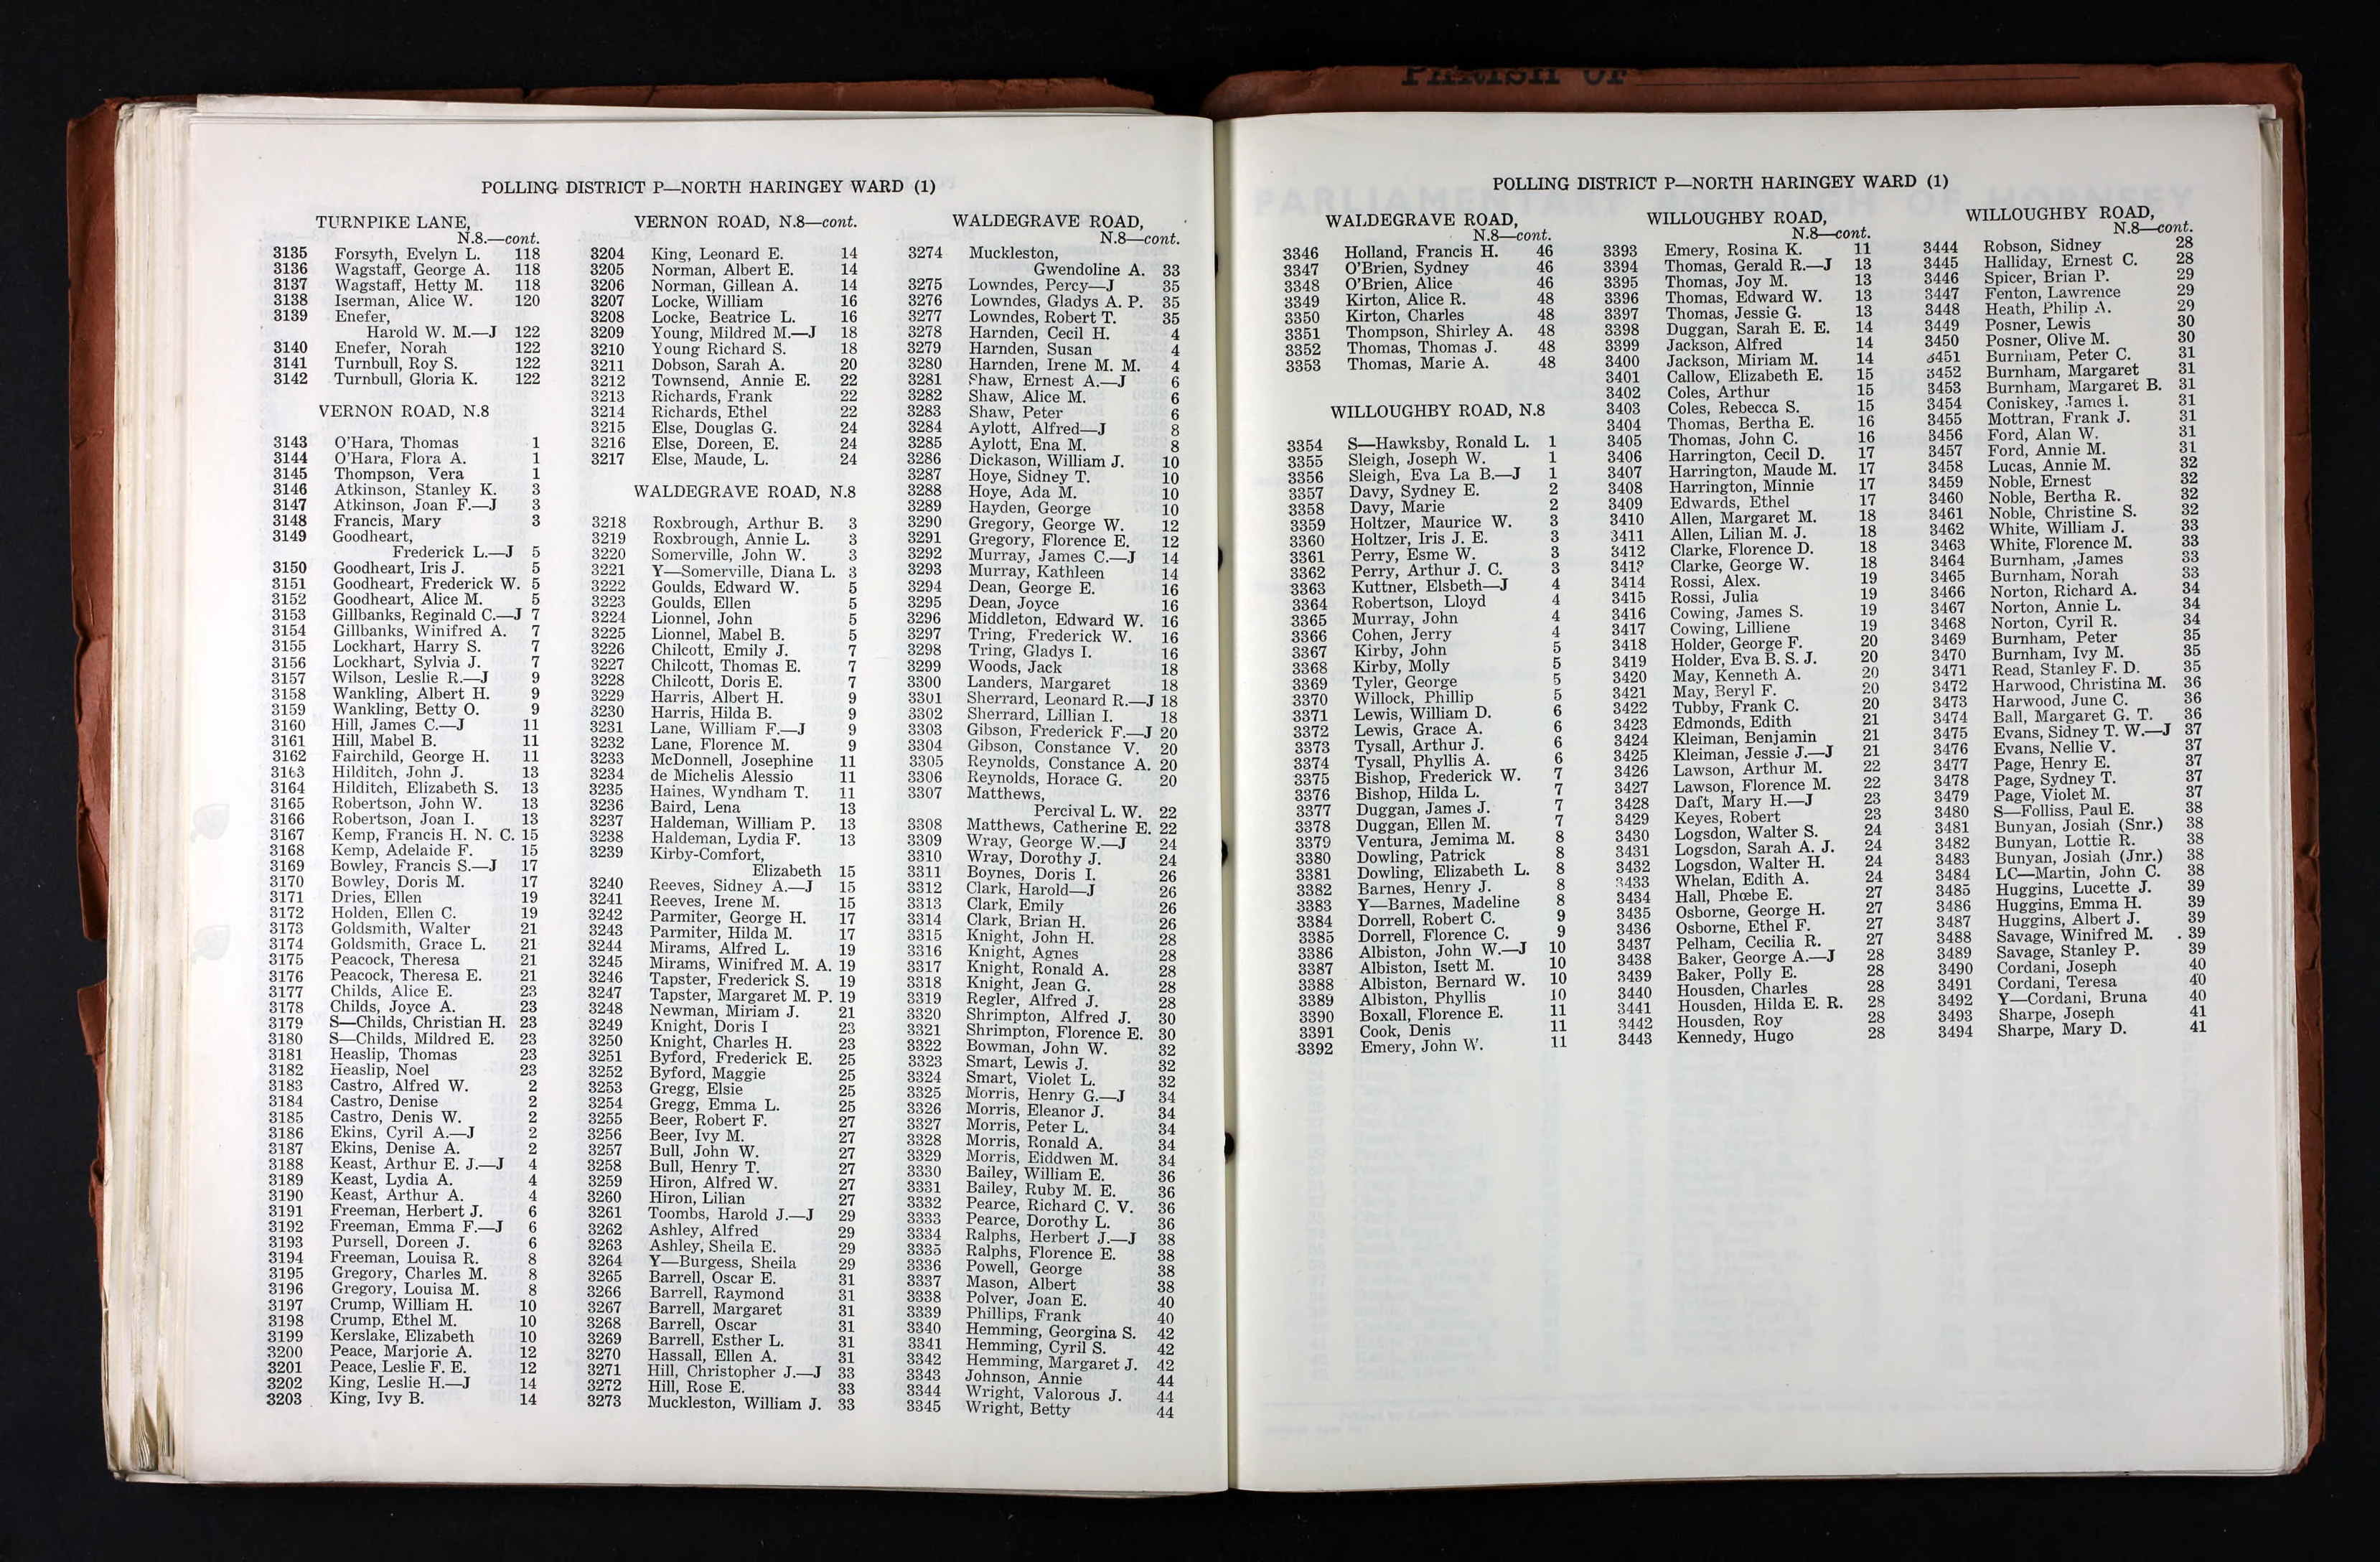 PARISH OF
POLLING DISTRICT P—NORTH HARINGEY WARD (1)
TURNPIKE LANE,
N.8.—cont.
3135 Forsyth, Evelyn L. 118
3136 Wagstaff, George A. 118
3137 Wagstaff, Hetty M. 118
3138 Iserman, Alice W. 120
3139 Enefer,
Harold W. M.—J 122
3140 Enefer, Norah 122
3141 Turnbull, Roy S. 122
3142 Turnbull, Gloria K. 122
VERNON ROAD, N.8
3143 O'Hara, Thomas 1
3144 O'Hara, Flora A. 1
3145 Thompson, Vera 1
3146 Atkinson, Stanley K. 3
3147 Atkinson, Joan F.—J 3
3148 Francis, Mary 3
3149 Goodheart,
Frederick L.—J 5
3150 Goodheart, Iris J. 5
3151 Goodheart, Frederick W. 5
3152 Goodheart, Alice M. 5
3153 Gillbanks, Reginald C.—J 7
3154 Gillbanks, Winifred A. 7
3155 Lockhart, Harry S. 7
3156 Lockhart, Sylvia J. 7
3157 Wilson, Leslie R.—J 9
3158 Wankling, Albert H. 9
3159 Wankling, Betty O. 9
3160 Hill, James C.—J 11
3161 Hill, Mabel B. 11
3162 Fairchild, George H. 11
3163 Hilditch, John J. 13
3164 Hilditch, Elizabeth S. 13
3165 Robertson, John W. 13
3166 Robertson, Joan I. 13
3167 Kemp, Francis H. N. C. 15
3168 Kemp, Adelaide F. 15
3169 Bowley, Francis S.—J 17
3170 Bowley, Doris M. 17
3171 Dries, Ellen 19
3172 Holden, Ellen C. 19
3173 Goldsmith, Walter 21
3174 Goldsmith, Grace L. 21
3175 Peacock, Theresa 21
3176 Peacock, Theresa E. 21
3177 Childs, Alice E. 23
3178 Childs, Joyce A. 23
3179 S—Childs, Christian H. 23
3180 S—Childs, Mildred E. 23
3181 Heaslip, Thomas 23
3182 Heaslip, Noel 23
3183 Castro, Alfred W. 2
3184 Castro, Denise 2
3185 Castro, Denis W. 2
3186 Ekins, Cyril A.—J 2
3187 Ekins, Denise A. 2
3188 Keast, Arthur E. J.—J 4
3189 Keast, Lydia A. 4
3190 Keast, Arthur A. 4
3191 Freeman, Herbert J. 6
3192 Freeman, Emma F.—J 6
3193 Pursell, Doreen J. 6
3194 Freeman, Louisa R. 8
3195 Gregory, Charles M. 8
3196 Gregory, Louisa M. 8
3197 Crump, William H. 10
3198 Crump, Ethel M. 10
3199 Kerslake, Elizabeth 10
3200 Peace, Marjorie A. 12
3201 Peace, Leslie F. E. 12
3202 King, Leslie H.—J 14
3203 King, Ivy B. 14
VERNON ROAD, N.8—cont.
3204 King, Leonard E. 14
3205 Norman, Albert E. 14
3206 Norman, Gillean A. 14
3207 Locke, William 16
3208 Locke, Beatrice L. 16
3209 Young, Mildred M.—J 18
3210 Young Richard S. 18
3211 Dobson, Sarah A. 20
3212 Townsend, Annie E. 22
3213 Richards, Frank 22
3214 Richards, Ethel 22
3215 Else, Douglas G. 24
3216 Else, Doreen, E. 24
3217 Else, Maude, L. 24
WALDEGRAVE ROAD, N.8
3218 Roxbrough, Arthur B. 3
3219 Roxbrough, Annie L. 3
3220 Somerville, John W. 3
3221 Y—Somerville, Diana L. 3
3222 Goulds, Edward W. 5
3223 Goulds, Ellen 5
3224 Lionnel, John 5
3225 Lionnel, Mabel B. 5
3226 Chilcott, Emily J. 7
3227 Chilcott, Thomas E. 7
3228 Chilcott, Doris E. 7
3229 Harris, Albert H. 9
3230 Harris, Hilda B. 9
3231 Lane, William F.—J 9
3232 Lane, Florence M. 9
3233 McDonnell, Josephine 11
3234 de Michelis Alessio 11
3235 Haines, Wyndham T. 11
3236 Baird, Lena 13
3237 Haldeman, William P. 13
3238 Haldeman, Lydia F. 13
3239 Kirby-Comfort,
Elizabeth 15
3240 Reeves, Sidney A.—J 15
3241 Reeves, Irene M. 15
3242 Parmiter, George H. 17
3243 Parmiter, Hilda M. 17
3244 Mirams, Alfred L. 19
3245 Mirams, Winifred M. A. 19
3246 Tapster, Frederick S. 19
3247 Tapster, Margaret M. P. 19
3248 Newman, Miriam J. 21
3249 Knight, Doris I 23
3250 Knight, Charles H. 23
3251 Byford, Frederick E. 25
3252 Byford, Maggie 25
3253 Gregg, Elsie 25
3254 Gregg, Emma L. 25
3255 Beer, Robert F. 27
3256 Beer, Ivy M. 27
3257 Bull, John W. 27
3258 Bull, Henry T. 27
3259 Hiron, Alfred W. 27
3260 Hiron, Lilian 27
3261 Toombs, Harold J.—J 29
3262 Ashley, Alfred 29
3263 Ashley, Sheila E. 29
3264 Y—Burgess, Sheila 29
3265 Barrell, Oscar E. 31
3266 Barrell, Raymond 31
3267 Barrell, Margaret 31
3268 Barrell, Oscar 31
3269 Barrell, Esther L. 31
3270 Hassall, Ellen A. 31
3271 Hill, Christopher J.—J 33
3272 Hill, Rose E. 33
3273 Muckleston, William J. 33
WALDEGRAVE ROAD,
N.8—cont.
3274 Muckleston,
Gwendoline A. 33
3275 Lowndes, Percy—J 35
3276 Lowndes, Gladys A. P. 35
3277 Lowndes, Robert T. 35
3278 Harnden, Cecil H. 4
3279 Harnden, Susan 4
3280 Harnden, Irene M. M. 4
3281 Shaw, Ernest A.—J 6
3282 Shaw, Alice M. 6
3283 Shaw, Peter 6
3284 Aylott, Alfred—J 8
3285 Aylott, Ena M. 8
3286 Dickason, William J. 10
3287 Hoye, Sidney T. 10
3288 Hoye, Ada M. 10
3289 Hayden, George 10
3290 Gregory, George W. 12
3291 Gregory, Florence E. 12
3292 Murray, James C.—J 14
3293 Murray, Kathleen 14
3294 Dean, George E. 16
3295 Dean, Joyce 16
3296 Middleton, Edward W. 16
3297 Tring, Frederick W. 16
3298 Tring, Gladys I. 16
3299 Woods, Jack 18
3300 Landers, Margaret 18
3301 Sherrard, Leonard R.—J 18
3302 Sherrard, Lillian I. 18
3303 Gibson, Frederick F.—J 20
3304 Gibson, Constance V. 20
3305 Reynolds, Constance A. 20
3306 Reynolds, Horace G. 20
3307 Matthews,
Percival L. W. 22
3308 Matthews, Catherine E. 22
3309 Wray, George W.—J 24
3310 Wray, Dorothy J. 24
3311 Boynes, Doris I. 26
3312 Clark, Harold—J 26
3313 Clark, Emily 26
3314 Clark, Brian H. 26
3315 Knight, John H. 28
3316 Knight, Agnes 28
3317 Knight, Ronald A. 28
3318 Knight, Jean G. 28
3319 Regler, Alfred J. 28
3320 Shrimpton, Alfred J. 30
3321 Shrimpton, Florence E. 30
3322 Bowman, John W. 32
3323 Smart, Lewis J. 32
3324 Smart, Violet L. 32
3325 Morris, Henry G.—J 34
3326 Morris, Eleanor J. 34
3327 Morris, Peter L. 34
3328 Morris, Ronald A. 34
3329 Morris, Eiddwen M. 34
3330 Bailey, William E. 36
3331 Bailey, Ruby M. E. 36
3332 Pearce, Richard C. V. 36
3333 Pearce, Dorothy L. 36
3334 Ralphs, Herbert J.—J 38
3335 Ralphs, Florence E. 38
3336 Powell, George 38
3337 Mason, Albert 38
3338 Polver, Joan E. 40
3339 Phillips, Frank 40
3340 Hemming, Georgina S. 42
3341 Hemming, Cyril S. 42
3342 Hemming, Margaret J. 42
3343 Johnson, Annie 44
3344 Wright, Valorous J. 44
3345 Wright, Betty 44
POLLING DISTRICT P—NORTH HARINGEY WARD (1)
WALDEGRAVE ROAD,
N.8—cont.
3346 Holland, Francis H. 46
3347 O'Brien, Sydney 46
3348 O'Brien, Alice 46
3349 Kirton, Alice R. 48
3350 Kirton, Charles 48
3351 Thompson, Shirley A. 48
3352 Thomas, Thomas J. 48
3353 Thomas, Marie A. 48
WILLOUGHBY ROAD, N.8
3354 S—Hawksby, Ronald L. 1
3355 Sleigh, Joseph W. 1
3356 Sleigh, Eva La B.—J 1
3357 Davy, Sydney E. 2
3358 Davy, Marie 2
3359 Holtzer, Maurice W. 3
3360 Holtzer, Iris J. E. 3
3361 Perry, Esme W. 3
3362 Perry, Arthur J. C. 3
3363 Kuttner, Elsbeth—J 4
3364 Robertson, Lloyd 4
3365 Murray, John 4
3366 Cohen, Jerry 4
3367 Kirby, John 5
3368 Kirby, Molly 5
3369 Tyler, George 5
3370 Willock, Phillip 5
3371 Lewis, William D. 6
3372 Lewis, Grace A. 6
3373 Tysall, Arthur J. 6
3374 Tysall, Phyllis A. 6
3375 Bishop, Frederick W. 7
3376 Bishop, Hilda L. 7
3377 Duggan, James J. 7
3378 Duggan, Ellen M. 7
3379 Ventura, Jemima M. 8
3380 Dowling, Patrick 8
3381 Dowling, Elizabeth L. 8
3382 Barnes, Henry J. 8
3383 Y—Barnes, Madeline 8
3384 Dorrell, Robert C. 9
3385 Dorrell, Florence C. 9
3386 Albiston, John W.—J 10
3387 Albiston, Isett M. 10
3388 Albiston, Bernard W. 10
3389 Albiston, Phyllis 10
3390 Boxall, Florence E. 11
3391 Cook, Denis 11
3392 Emery, John W. 11
WILLOUGHBY ROAD,
N.8—cont.
3393 Emery, Rosina K. 11
3394 Thomas, Gerald R.—J 13
3395 Thomas, Joy M. 13
3396 Thomas, Edward W. 13
3397 Thomas, Jessie G. 13
3398 Duggan, Sarah E. E. 14
3399 Jackson, Alfred 14
3400 Jackson, Miriam M. 14
3401 Callow, Elizabeth E. 15
3402 Coles, Arthur 15
3403 Coles, Rebecca S. 15
3404 Thomas, Bertha E. 16
3405 Thomas, John C. 16
3406 Harrington, Cecil D. 17
3407 Harrington, Maude M. 17
3408 Harrington, Minnie 17
3409 Edwards, Ethel 17
3410 Allen, Margaret M. 18
3411 Allen, Lilian M. J. 18
3412 Clarke, Florence D. 18
3413 Clarke, George W. 18
3414 Rossi, Alex. 19
3415 Rossi, Julia 19
3416 Cowing, James S. 19
3417 Cowing, Lilliene 19
3418 Holder, George F. 20
3419 Holder, Eva B. S. J. 20
3420 May, Kenneth A. 20
3421 May, Beryl F. 20
3422 Tubby, Frank C. 20
3423 Edmonds, Edith 21
3424 Kleiman, Benjamin 21
3425 Kleiman, Jessie J.—J 21
3426 Lawson, Arthur M. 22
3427 Lawson, Florence M. 22
3428 Daft, Mary H.—J 23
3429 Keyes, Robert 23
3430 Logsdon, Walter S. 24
3431 Logsdon, Sarah A. J. 24
3432 Logsdon, Walter H. 24
3433 Whelan, Edith A. 24
3434 Hall, Phœbe E. 27
3435 Osborne, George H. 27
3436 Osborne, Ethel F. 27
3437 Pelham, Cecilia R. 27
3438 Baker, George A.—J 28
3439 Baker, Polly E. 28
3440 Housden, Charles 28
3441 Housden, Hilda E. R. 28
3442 Housden, Roy 28
3443 Kennedy, Hugo 28
WILLOUGHBY ROAD,
N.8—cont.
3444 Robson, Sidney 28
3445 Halliday, Ernest C. 28
3446 Spicer, Brian P. 29
3447 Fenton, Lawrence 29
3448 Heath, Philip A. 29
3449 Posner, Lewis 30
3450 Posner, Olive M. 30
3451 Burnham, Peter C. 31
3452 Burnham, Margaret 31
3453 Burnham, Margaret B. 31
3454 Coniskey, James I. 31
3455 Mottran, Frank J. 31
3456 Ford, Alan W. 31
3457 Ford, Annie M. 31
3458 Lucas, Annie M. 32
3459 Noble, Ernest 32
3460 Noble, Bertha R. 32
3461 Noble, Christine S. 32
3462 White, William J. 33
3463 White, Florence M. 33
3464 Burnham, ,James 33
3465 Burnham, Norah 33
3466 Norton, Richard A. 34
3467 Norton, Annie L. 34
3468 Norton, Cyril R. 34
3469 Burnham, Peter 35
3470 Burnham, Ivy M. 35
3471 Read, Stanley F. D. 35
3472 Harwood, Christina M. 36
3473 Harwood, June C. 36
3474 Ball, Margaret G. T. 36
3475 Evans, Sidney T. W.—J 37
3476 Evans, Nellie V. 37
3477 Page, Henry E. 37
3478 Page, Sydney T. 37
3479 Page, Violet M. 37
3480 S—Folliss, Paul E. 38
3481 Bunyan, Josiah (Snr.) 38
3482 Bunyan, Lottie R. 38
3483 Bunyan, Josiah (Jnr.) 38
3484 LC—Martin, John C. 38
3485 Huggins, Lucette J. 39
3486 Huggins, Emma H. 39
3487 Huggins, Albert J. 39
3488 Savage, Winifred M. 39
3489 Savage, Stanley P. 39
3490 Cordani, Joseph 40
3491 Cordani, Teresa 40
3492 Y—Cordani, Bruna 40
3493 Sharpe, Joseph 41
3494 Sharpe, Mary D. 41